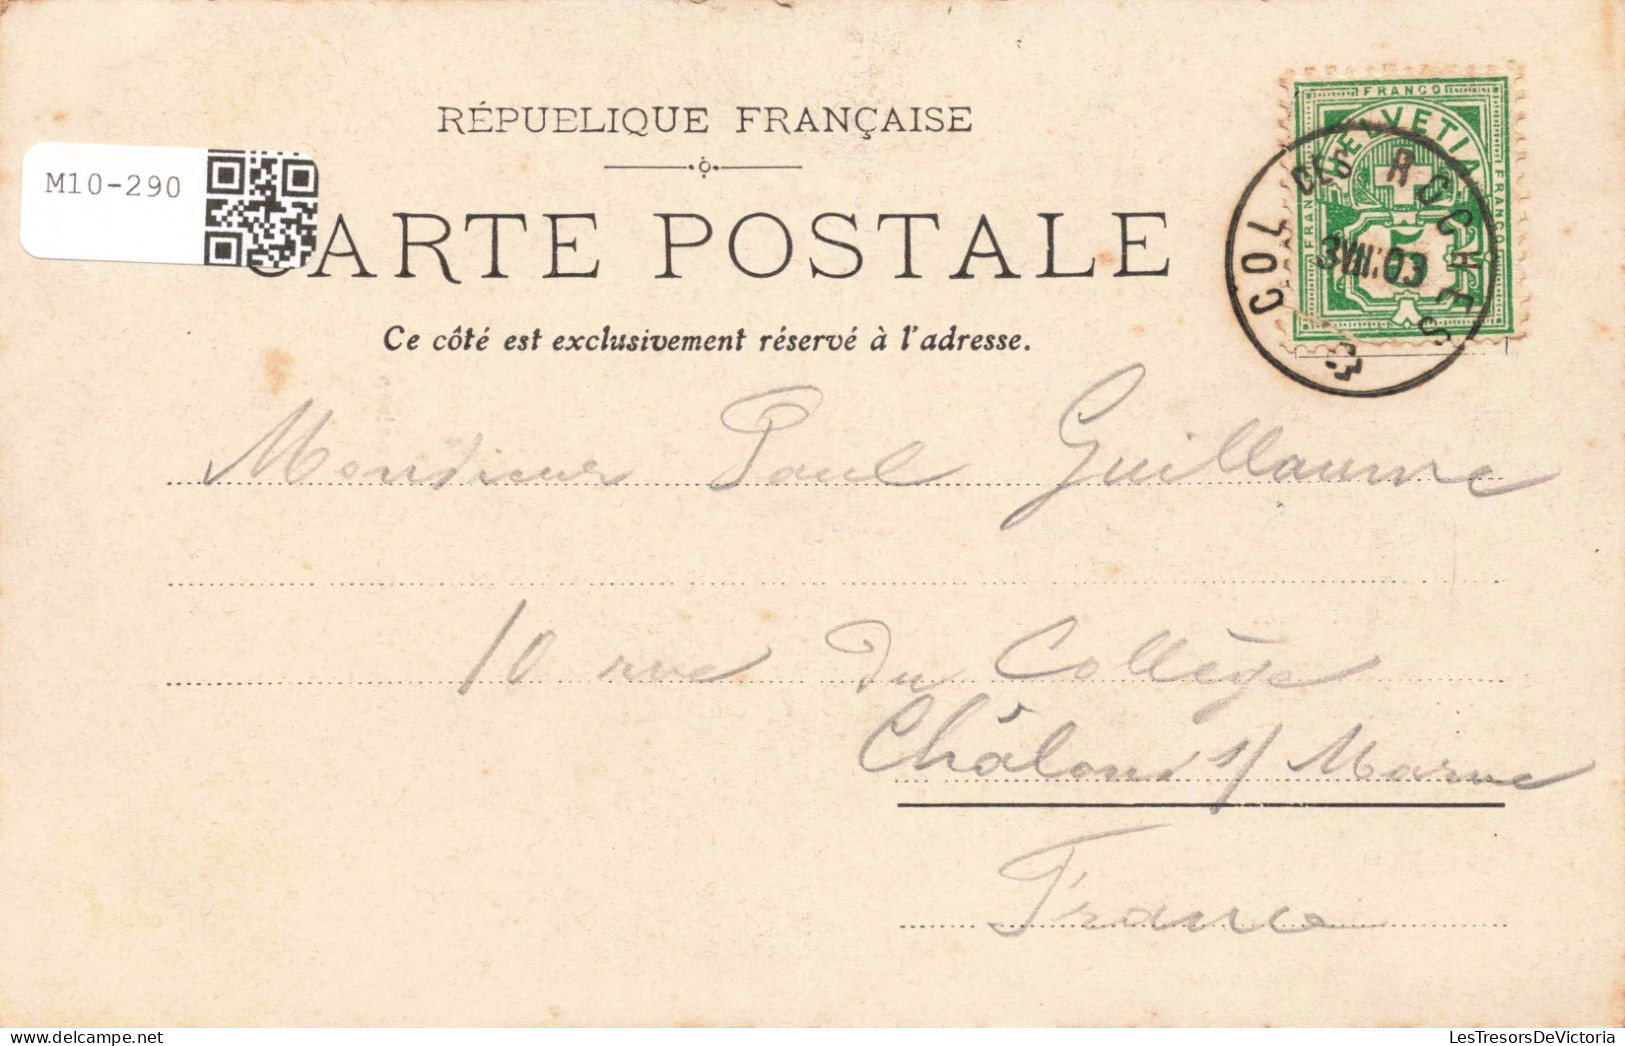 RÉPUBLIQUE FRANÇAISE
M10-290
CARTE POSTALE
Ce côté est exclusivement réservé à l'adresse.
FRANCO
HELVETIA
FRANCO
FRANCO
5
COL DES ROCHES
Monsieur Paul Guillaume
10 rue du Collège
Châlons s/ Marne
France
LesTresorsDeVictoria